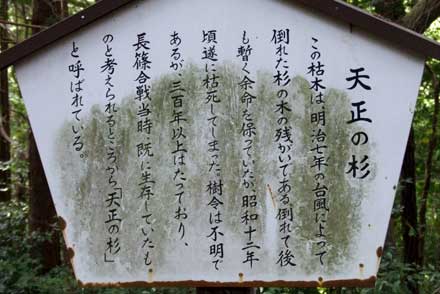 天正の杉
この枯木は、明治七年の台風によって
倒れた杉の木の残がいである。倒れて後
も暫く余命を保っていたが、昭和十二年
頃遂に枯死してしまった。樹令は不明で
あるが、三百年以上はたっており、
長篠合戦当時、既に生存していたも
のと考えられるところから「天正の杉」
と呼ばれている。